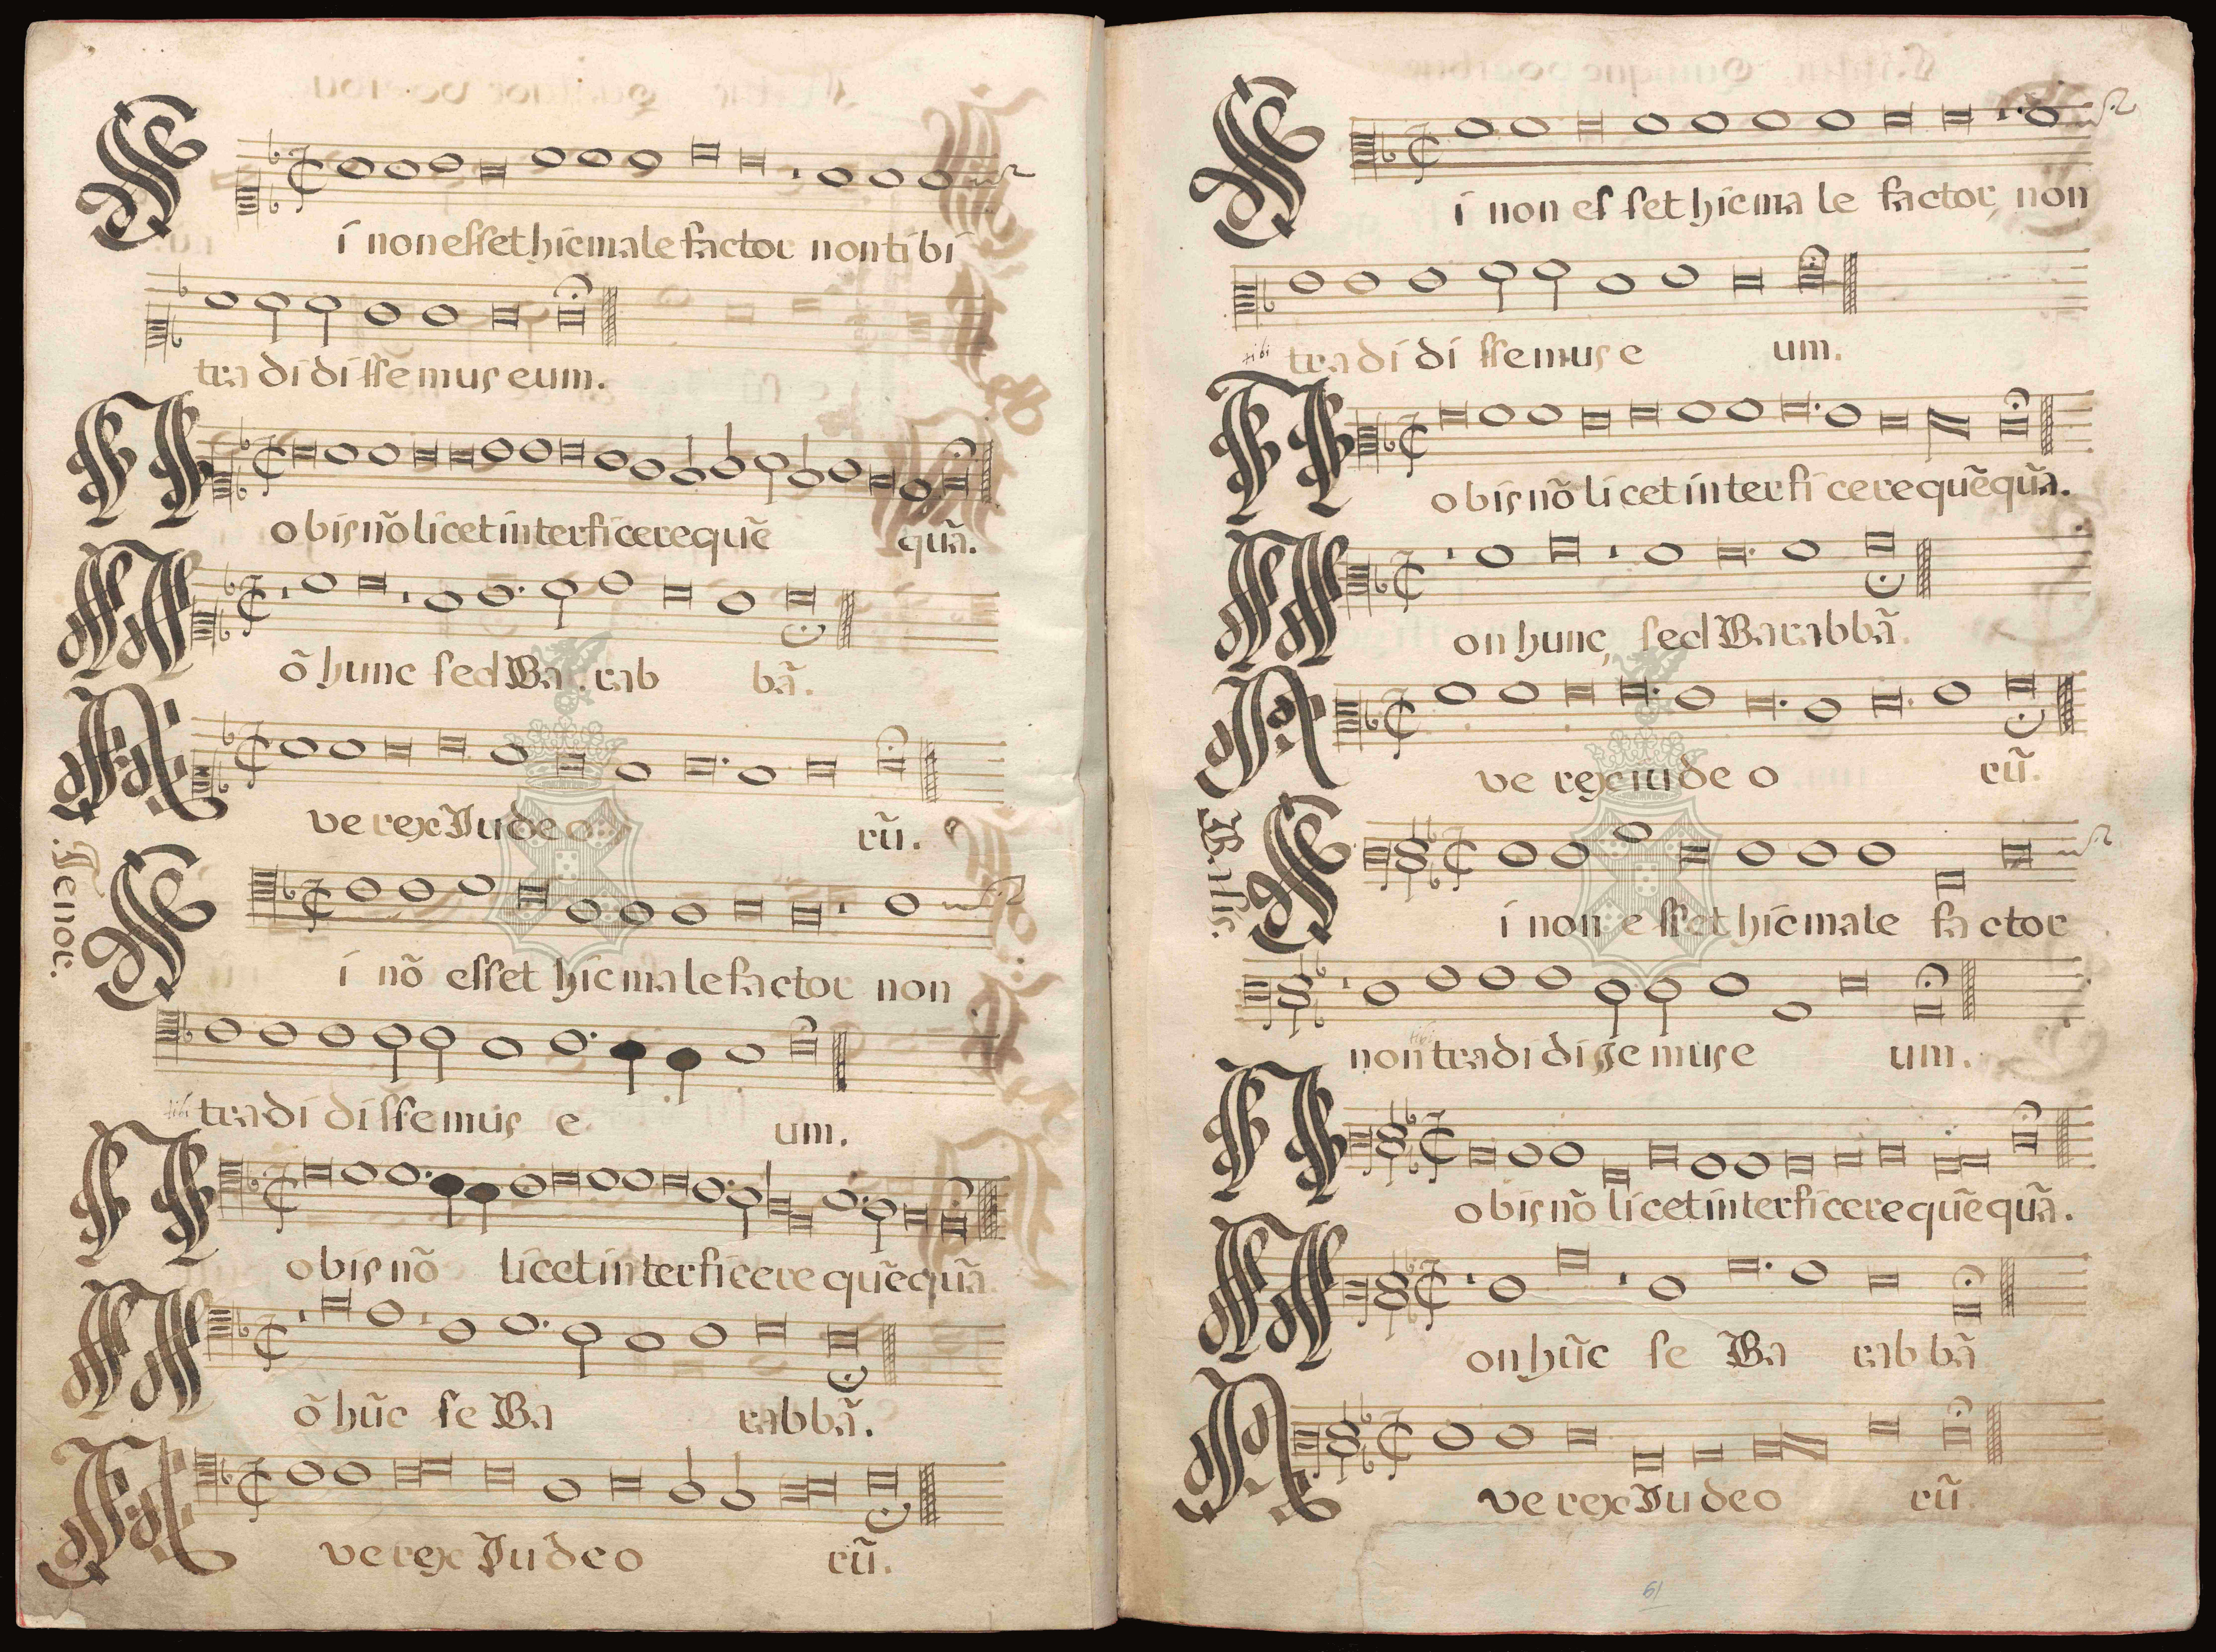 Si non esset hic male factor non tibi
tradidissemus eum.
Nobis nõ licet interficere quẽ quã.
Nõ hunc sed Ba rab bã.
Ave rex Iudeo rũ.
Tenor.
Si nõ esset hic malefactor non
tibi tradi dissemus e um.
Nobis nõ licet interficere quẽquã
Nõ hũc se Ba rabbã.
Ave rex Iudeo rũ.
Si non es set hic ma le factor, non
tibi tradi di ssemus e um.
Nobis nõ li cet interfi cere quẽquã.
Non hunc, sed Barabbã.
Ave rex iudeo rũ.
Basis.
Si non e sset hic male fa ctor
non tibi tradi di sse mus e um.
Nobis nõ licet interficere quẽquã.
Non hũc se Ba rabbã
Ave rex Iudeo rũ.
61